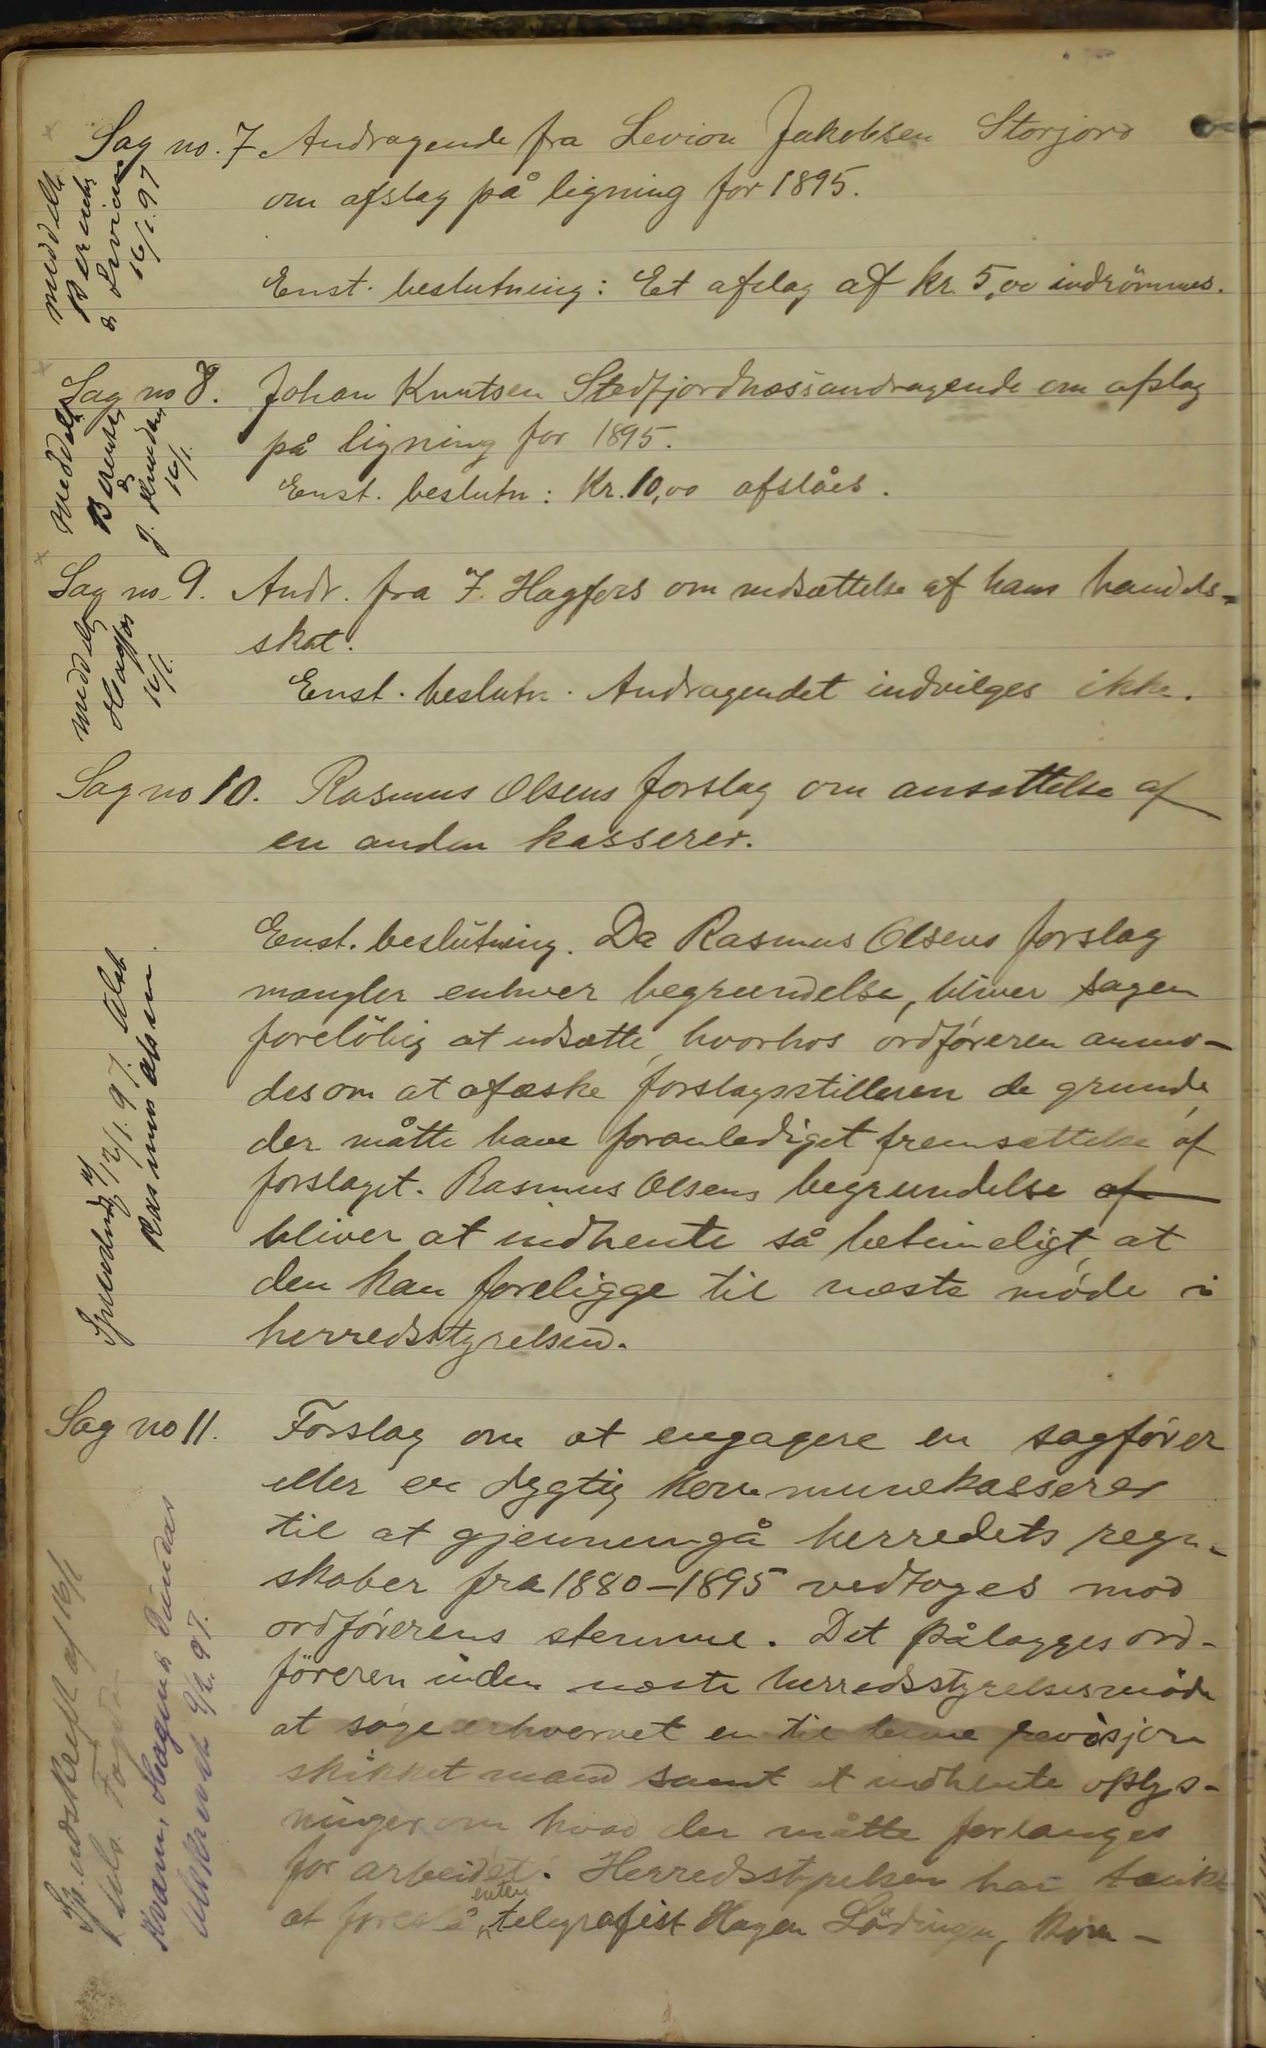 Sag no. 7. Andragende fra Levion Jakobsen Storjord
om afslag på ligning for 1895.
meddelt
Berentsen
& Levion
16/1. 97
Enst. beslutning: Et afslag af kr. 5,00 indrömmes.
Sag no 8. Johan Knutsen Stedfjordnæs's andragende om afslag
på ligning for 1895.
Enst. beslutn: Kr. 10,00 afslåes.
meddelt
Berentsen
&
J. Knudsen
16/1.
Sag no. 9. Andr. fra F. Hagfors om nedsættelse af hans handels-
skat.
Enst. beslutn. Andragendet indvilges ikke.
meddelt
Hagfos
16/1.
Sag no 10. Rasmus Olsens forslag om ansættelse af
en anden kasserer.
Enst. beslutning. Da Rasmus Olsens forslag
mangler enhver begrundelse, bliver sagen
forelöbig at udsætte, hvorhos ordføreren anmo-
des om at afæske forslagsstilleren de grunde,
der måtte have foranlediget fremsættelse af
forslaget. Rasmus Olsens begrundelse af
bliver at indhente så betimeligt, at
den kan foreligge til næste møde i
herredsstyrelsen.
12/1. 97.
Rasmus Olsen.
Sag no 11. Forslag om at engagere en sagfører
eller en dygtig kommunekasserer
til at gjennemgå herredets regn-
skaber fra 1880-1895 vedtoges mod
ordførerens stemme. Det pålægges ord-
föreren inden næste herredsstyrelsesmöde
at søge erhvervet en til denne revisjon
skikket mand samt at indhente oplys-
ninger om hvad der måtte forlanges
for arbeidet. Herredsstyrelsen har tænkt
at foreslå enten telegrafist Hagen Lödingen, Kom-
udskrift af 16/1
Fogden
Hagen &
9/2. 97.